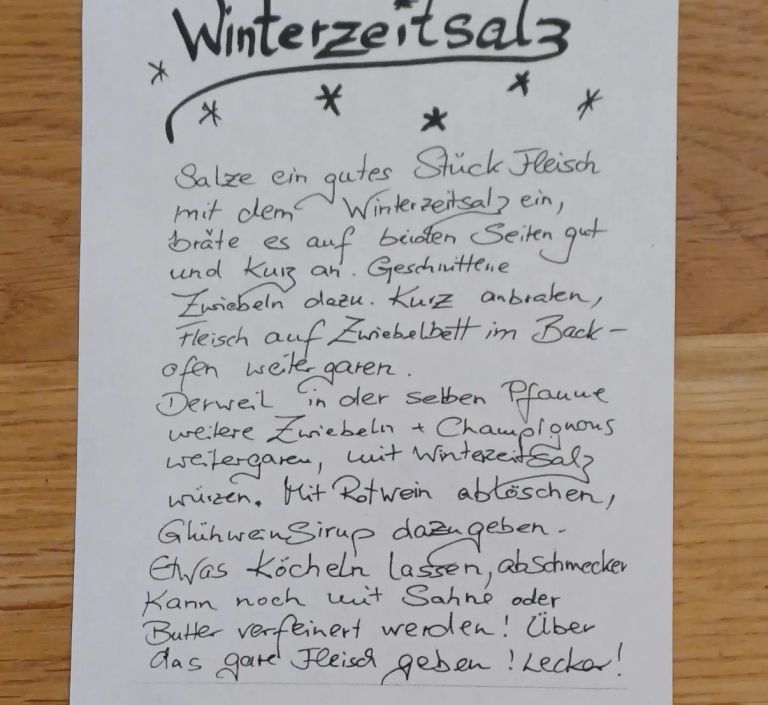 Winterzeitsalz
Salze ein gutes Stück Fleisch
mit dem Winterzeitsalz ein,
bräte es auf beiden Seiten gut
und Kurz an. Geschnittene
Zwiebeln dazu. Kurz anbraten,
Fleisch auf Zwiebelbett im Back-
ofen weiter garen.
Derweil in der selben Pfanne
weitere Zwiebeln + Champignons
weitergaren, mit WinterzeitSalz
würzen. Mit Rotwein ablöschen,
GlühweinSirup dazugeben.
Etwas Köcheln lassen, abSchmecken
Kann noch mit Sahne oder
Butter verfeinert werden! Über
das gare Fleisch geben! Lecker!